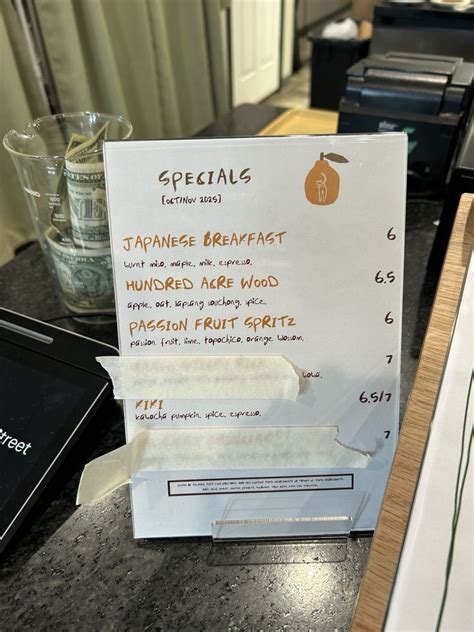 SPECIALS
[OCT/NOV 2025]
JAPANESE BREAKFAST 6
burnt miso, maple, milk, espresso.
HUNDRED ACRE WOOD 6.5
apple, oat, lapsang souchong, spice.
PASSION FRUIT SPRITZ 6
passion fruit, lime, topochico, orange blossom.
7
KIKI 6.5/7
kabocha pumpkin, spice, espresso.
7
treet